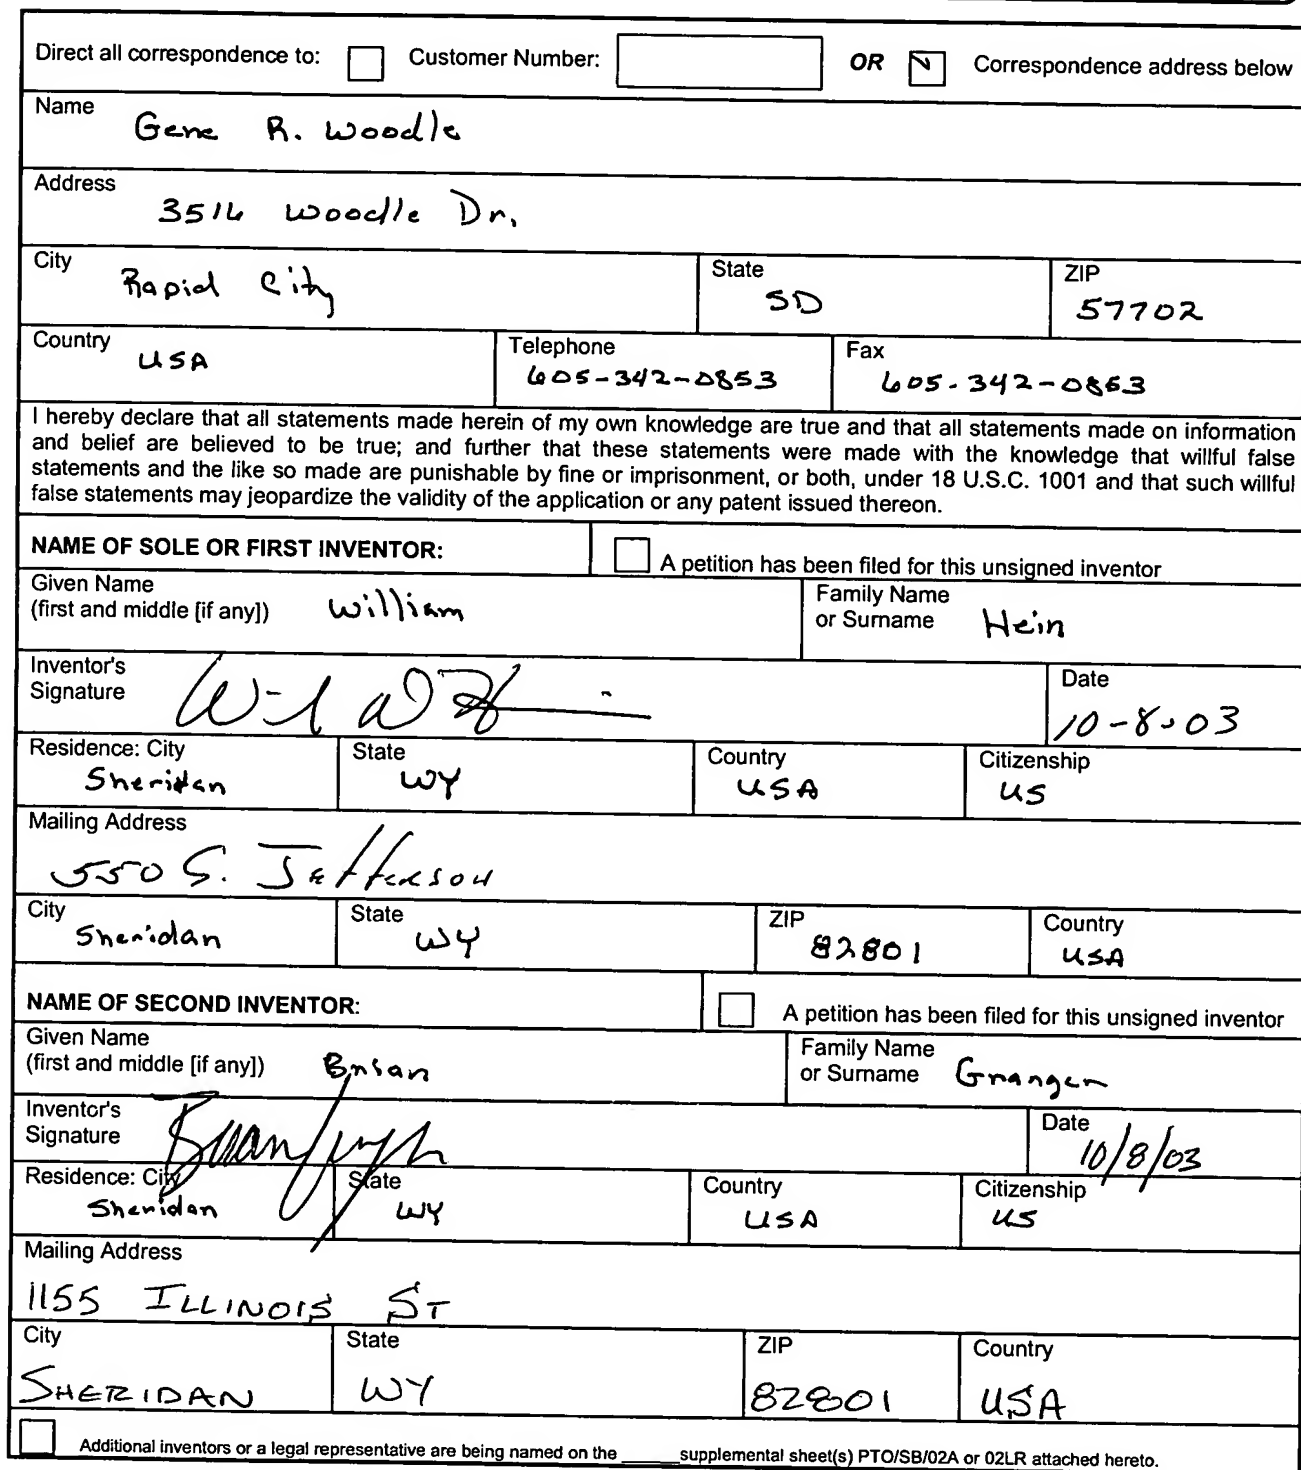 Direct all correspondence to: Customer Number: OR Correspondence address below
Name
Gene R. Woodle
Address
3516 Woodle Dr.
City State ZIP
Rapid City SD 57702
Country Telephone Fax
USA 605-342-0853 605-342-0853
I hereby declare that all statements made herein of my own knowledge are true and that all statements made on information
and belief are believed to be true; and further that these statements were made with the knowledge that willful false
statements and the like so made are punishable by fine or imprisonment, or both, under 18 U.S.C. 1001 and that such willful
false statements may jeopardize the validity of the application or any patent issued thereon.
NAME OF SOLE OR FIRST INVENTOR: A petition has been filed for this unsigned inventor
Given Name Family Name
(first and middle [if any]) William or Surname Hein
Inventor's Date
Signature 10-8-03
Residence: City State Country Citizenship
Sheridan WY USA US
Mailing Address
550 S. Jefferson
City State ZIP Country
Sheridan WY 82801 USA
NAME OF SECOND INVENTOR: A petition has been filed for this unsigned inventor
Given Name Family Name
(first and middle [if any]) Brian or Surname Granger
Inventor's Date
Signature 10/8/03
Residence: City State Country Citizenship
Sheridan WY USA US
Mailing Address
1155 ILLINOIS ST
City State ZIP Country
SHERIDAN WY 82801 USA
Additional inventors or a legal representative are being named on the ______supplemental sheet(s) PTO/SB/02A or 02LR attached hereto.